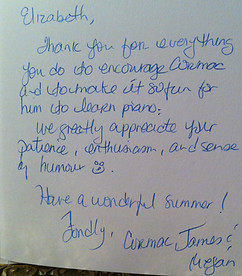 Elizabeth,
Thank you for everything
you do to encourage Cormac
and to make it so fun for
him to learn piano.
We greatly appreciate your
patience, enthusiasm, and sense
of humour ☺.
Have a wonderful summer!
Fondly, Cormac, James &
Megan